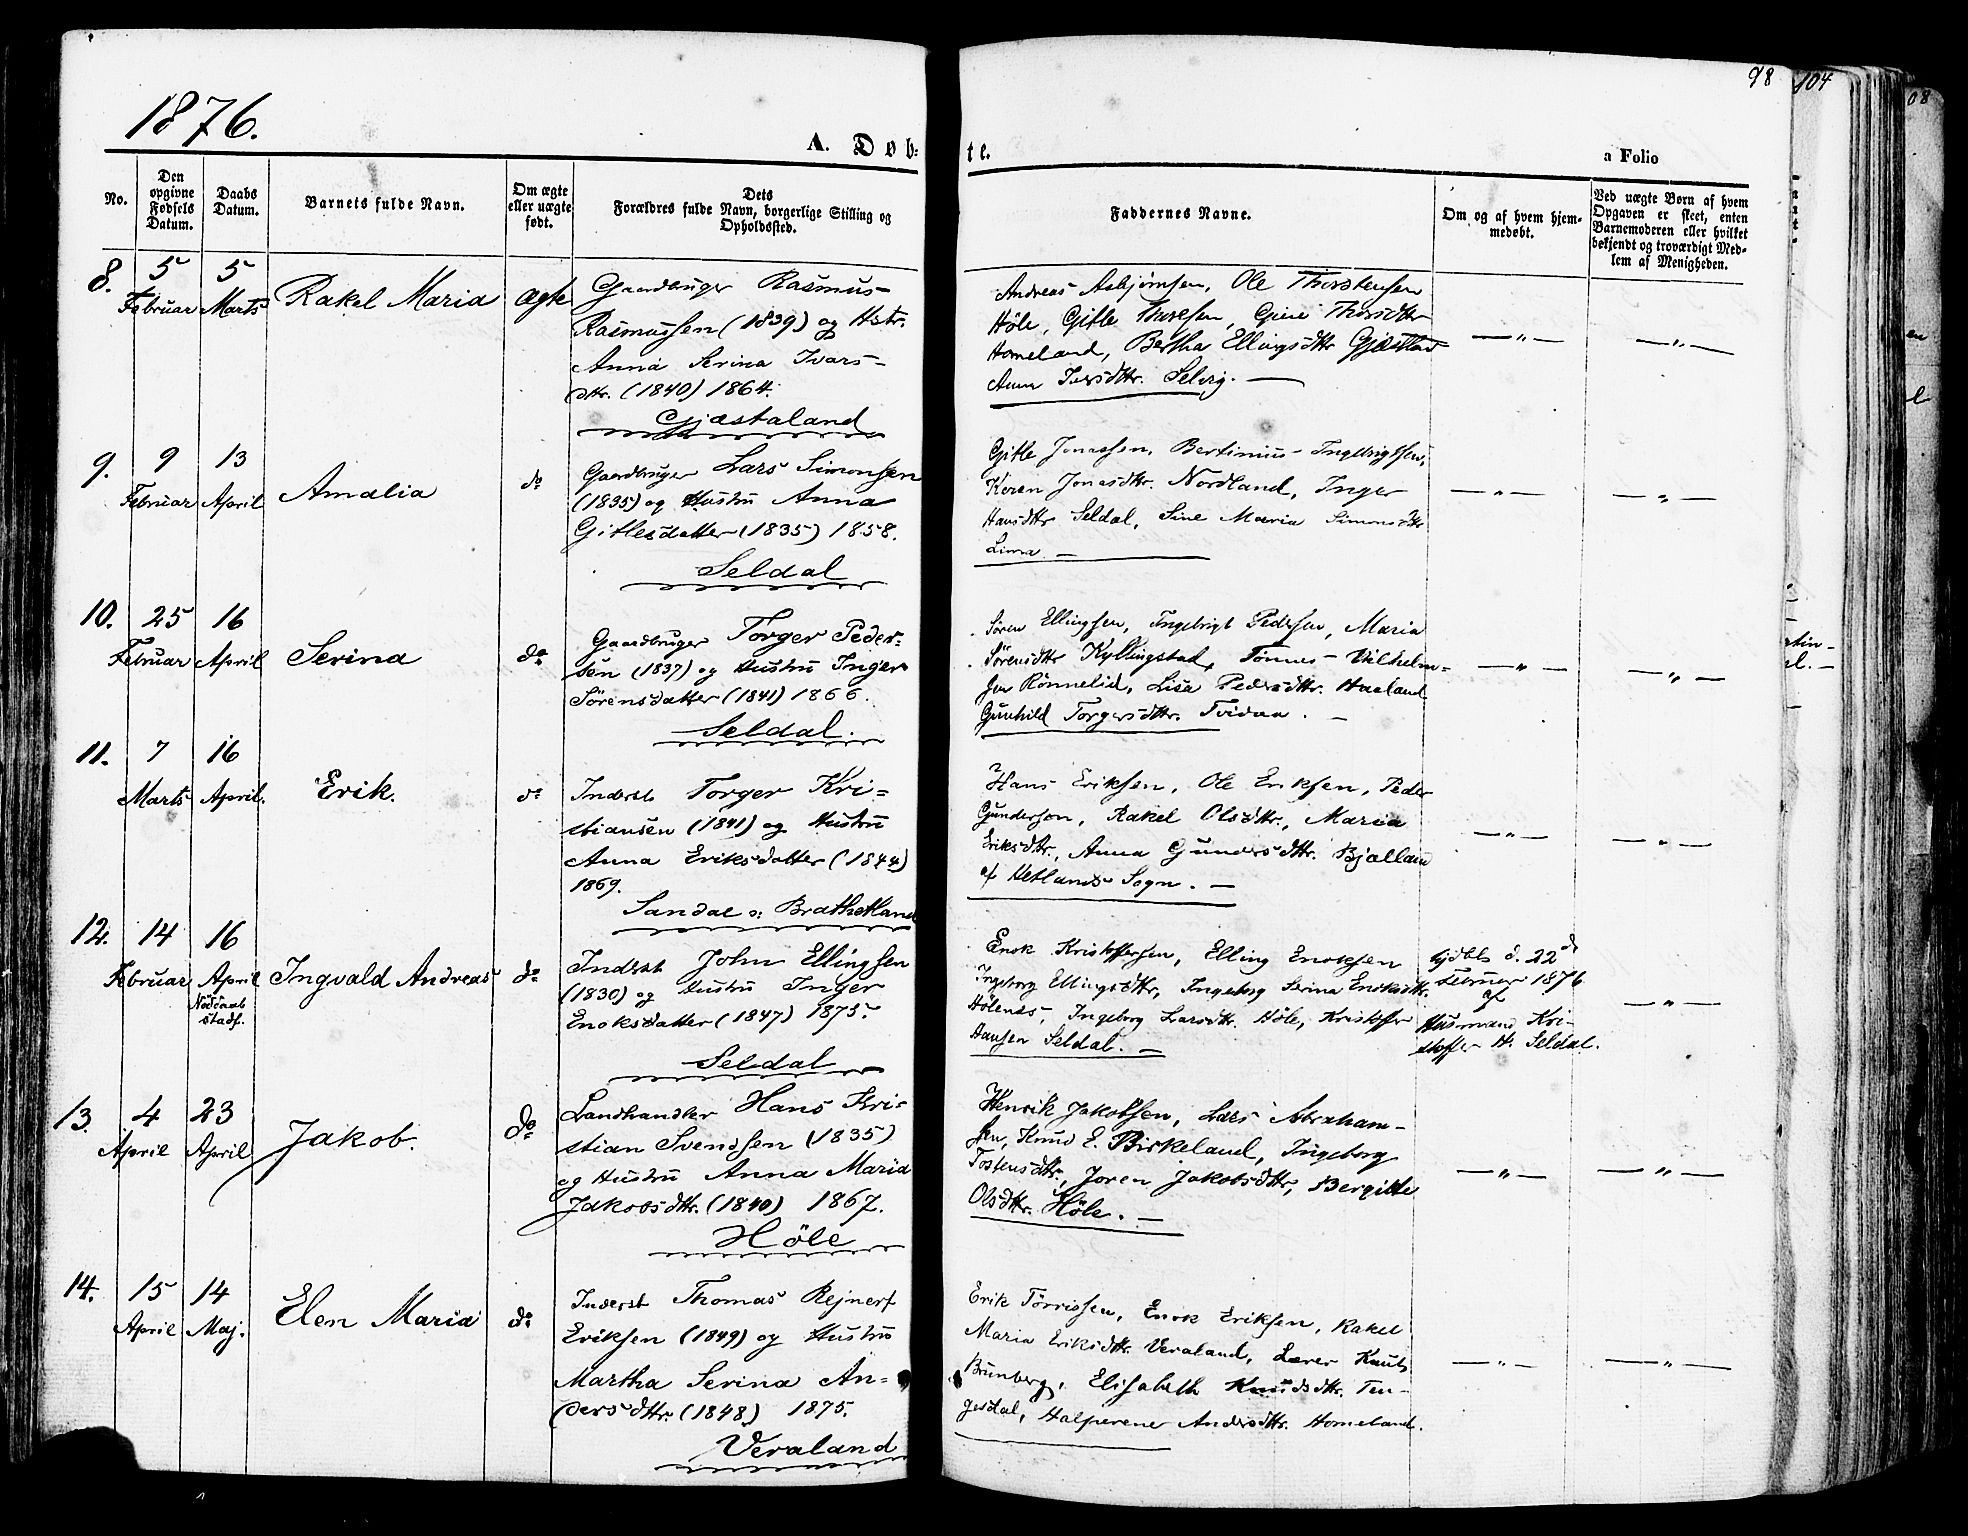 1876.
98
104
08
A. Døb-
te.
a Folio
No.
Den opgivne Fødsels Datum.
Daabs Datum.
Barnets fulde Navn.
Om ægte eller uægte født.
Dets Forældres fulde Navn, borgerlige Stilling og Opholdssted.
Faddernes Navne.
Om og af hvem hjemmedøbt.
Ved uægte Børn af hvem Opgaven er skeet, enten Barnemoderen eller hvilket bekjendt og troværdigt Medlem af Menigheden.
8.
5 Februar
5 Marts
Rakel Maria
ægte
Gaardbruger Rasmus
Rasmussen (1839) og Hstr.
Anna Serina Ivars-
dtr. (1840) 1864.
Gjæstaland
Andreas Asbjørnsen, Ole Thorstensen
Höle, Gitle Thorsdtr
Homeland, Bertha Ellingsdtr
Selvig. —
— " —
— " —
9.
9 Februar
13 April
Amalia
do
Gaardbruger Lars Simonsen
(1835) og Hustru Anna
Gitlesdatter (1835) 1858.
Seldal
Gitle Jonassen, Bertinius Ingebrigtsen,
Karen Jonasdtr. Nordland, Inger
Hansdtr Seldal, Sine Maria Simonsdtr
Lima. —
— " —
— " —
10.
25 Februar
16 April
Serina
do
Gaardbruger Torger Peder-
sen (1837) og Hustru Inger
Sörensdatter (1841) 1866.
Seldal.
Sören Ellingsen, Ingebrigt Pedersen, Maria
Sörensdtr Kyllingstad, Tönnes Vilhelm-
sen Rönnelid, Lisa Pedersdtr. Haaland
Gunhild Torgersdtr. Tvidaa. —
— " —
— " —
11.
7 Marts
16 April.
Erik.
do
Inderst Torger Kri-
stiansen (1841) og Hustru
Anna Eriksdatter (1844)
1869.
Sandal o: Brathetland
Hans Eriksen, Ole Eriksen, Peder
Gunderson, Rakel Olsdtr., Maria
Eriksdtr., Anna Gundersdtr.
af Hetlands Sogn. —
— " —
— " —
12.
14 Februar
16 April
Nöddaab
stadf.
Ingvald Andreas
do
Inderst John Ellingsen
(1830) og Hustru Inger
Enoksdatter (1847) 1875.
Seldal
Enok Kristoffersen, Elling Enoksen
Ingeborg Ellingsdtr, Ingeborg Serina Enoksdtr.
Hölenæs, Ingeborg Larsdtr. Höle, Kristoffer
Hansen Seldal. —
hjdbt d. 22
Februar 1876
af
Husmand Kri-
stoffer H. Seldal.
— " —
13.
4 April
23 April
Jakob.
do
Landhandler Hans Kri-
stian Svendsen (1835)
og Hustru Anna Maria
Jakobsdtr. (1840) 1867.
Höle
Henrik Jakobsen, Lars Abraham-
sen, Knud E. Birkeland, Ingeborg
Tostensdtr., Joren Jakobsdtr, Bergitte
Olsdtr. Höle. —
— " —
— " —
14.
15 April
14 Maj.
Elen Maria
do
Inderst Thomas Rejnert
Eriksen (1849) og Hustru
Martha Serina An-
dersdtr. (1848) 1875.
Veraland
Erik Törrissen, Enok Eriksen, Rakel
Maria Eriksdtr. Veraland, Lærer Knut
Brunberg, Elisabeth Knudsdtr. Ten-
gesdal, Andersdtr. Homeland.
— " —
— " —